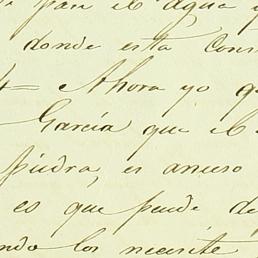 pan el agua y
donde esta Cons
4= Ahora yo q
Garcia que el
piedra, es anuso
es que pende de
ndo los necesite